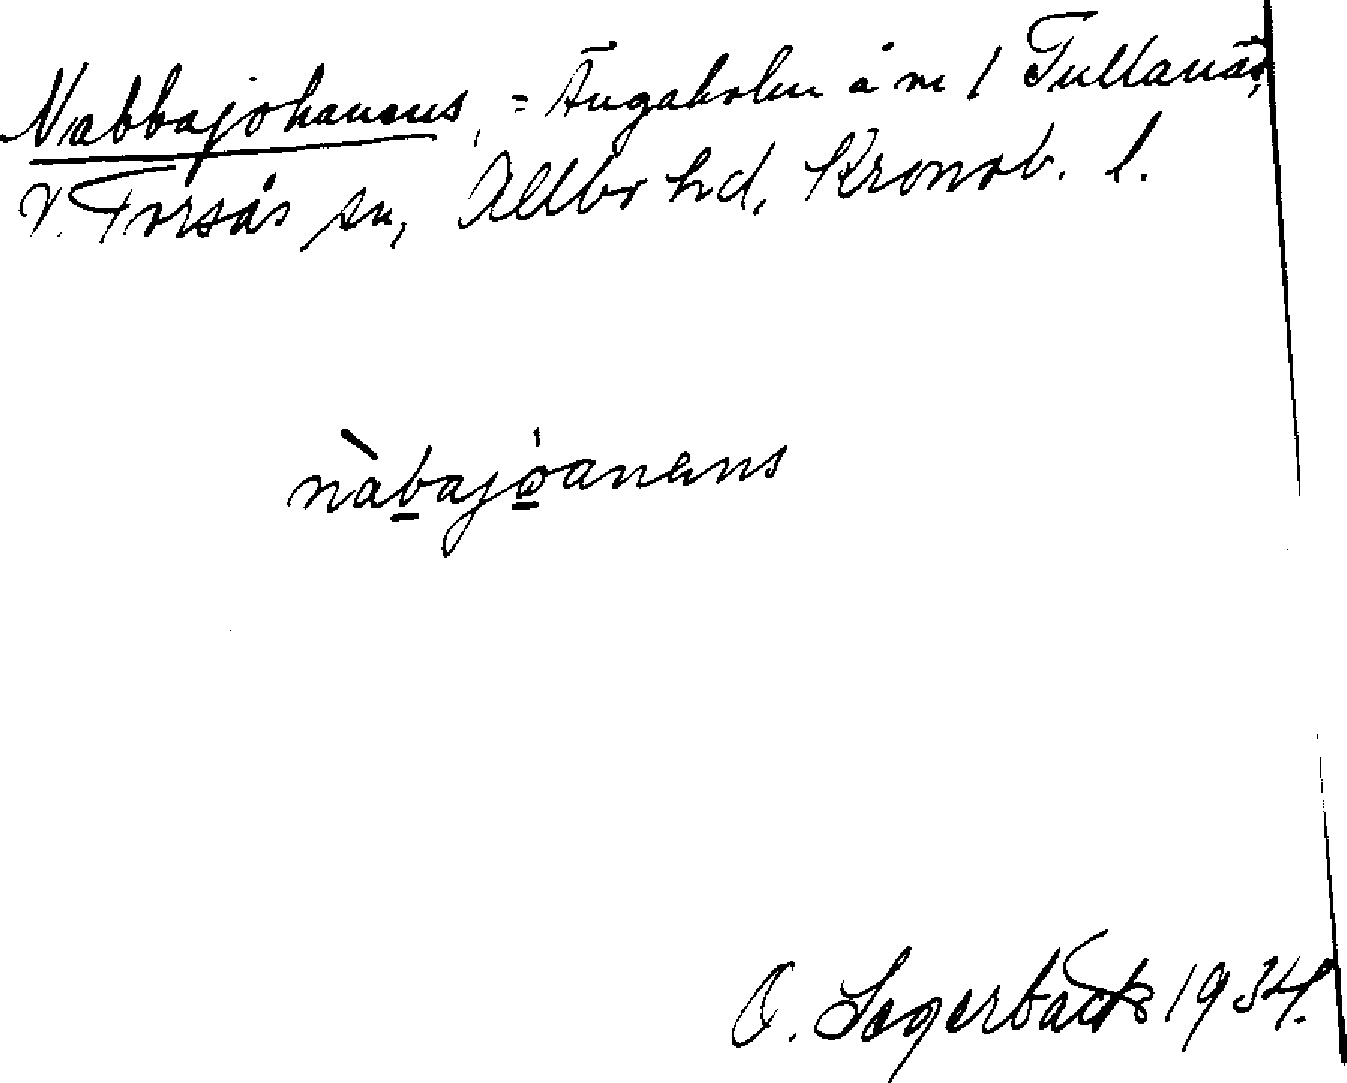 Nabbajohanens, = Ängaholm å m 1 Tullanäs,
V. Torsås sn, Allbo hd, Kronob. l.
nàbajòanens
O. Segerbäck 1934.